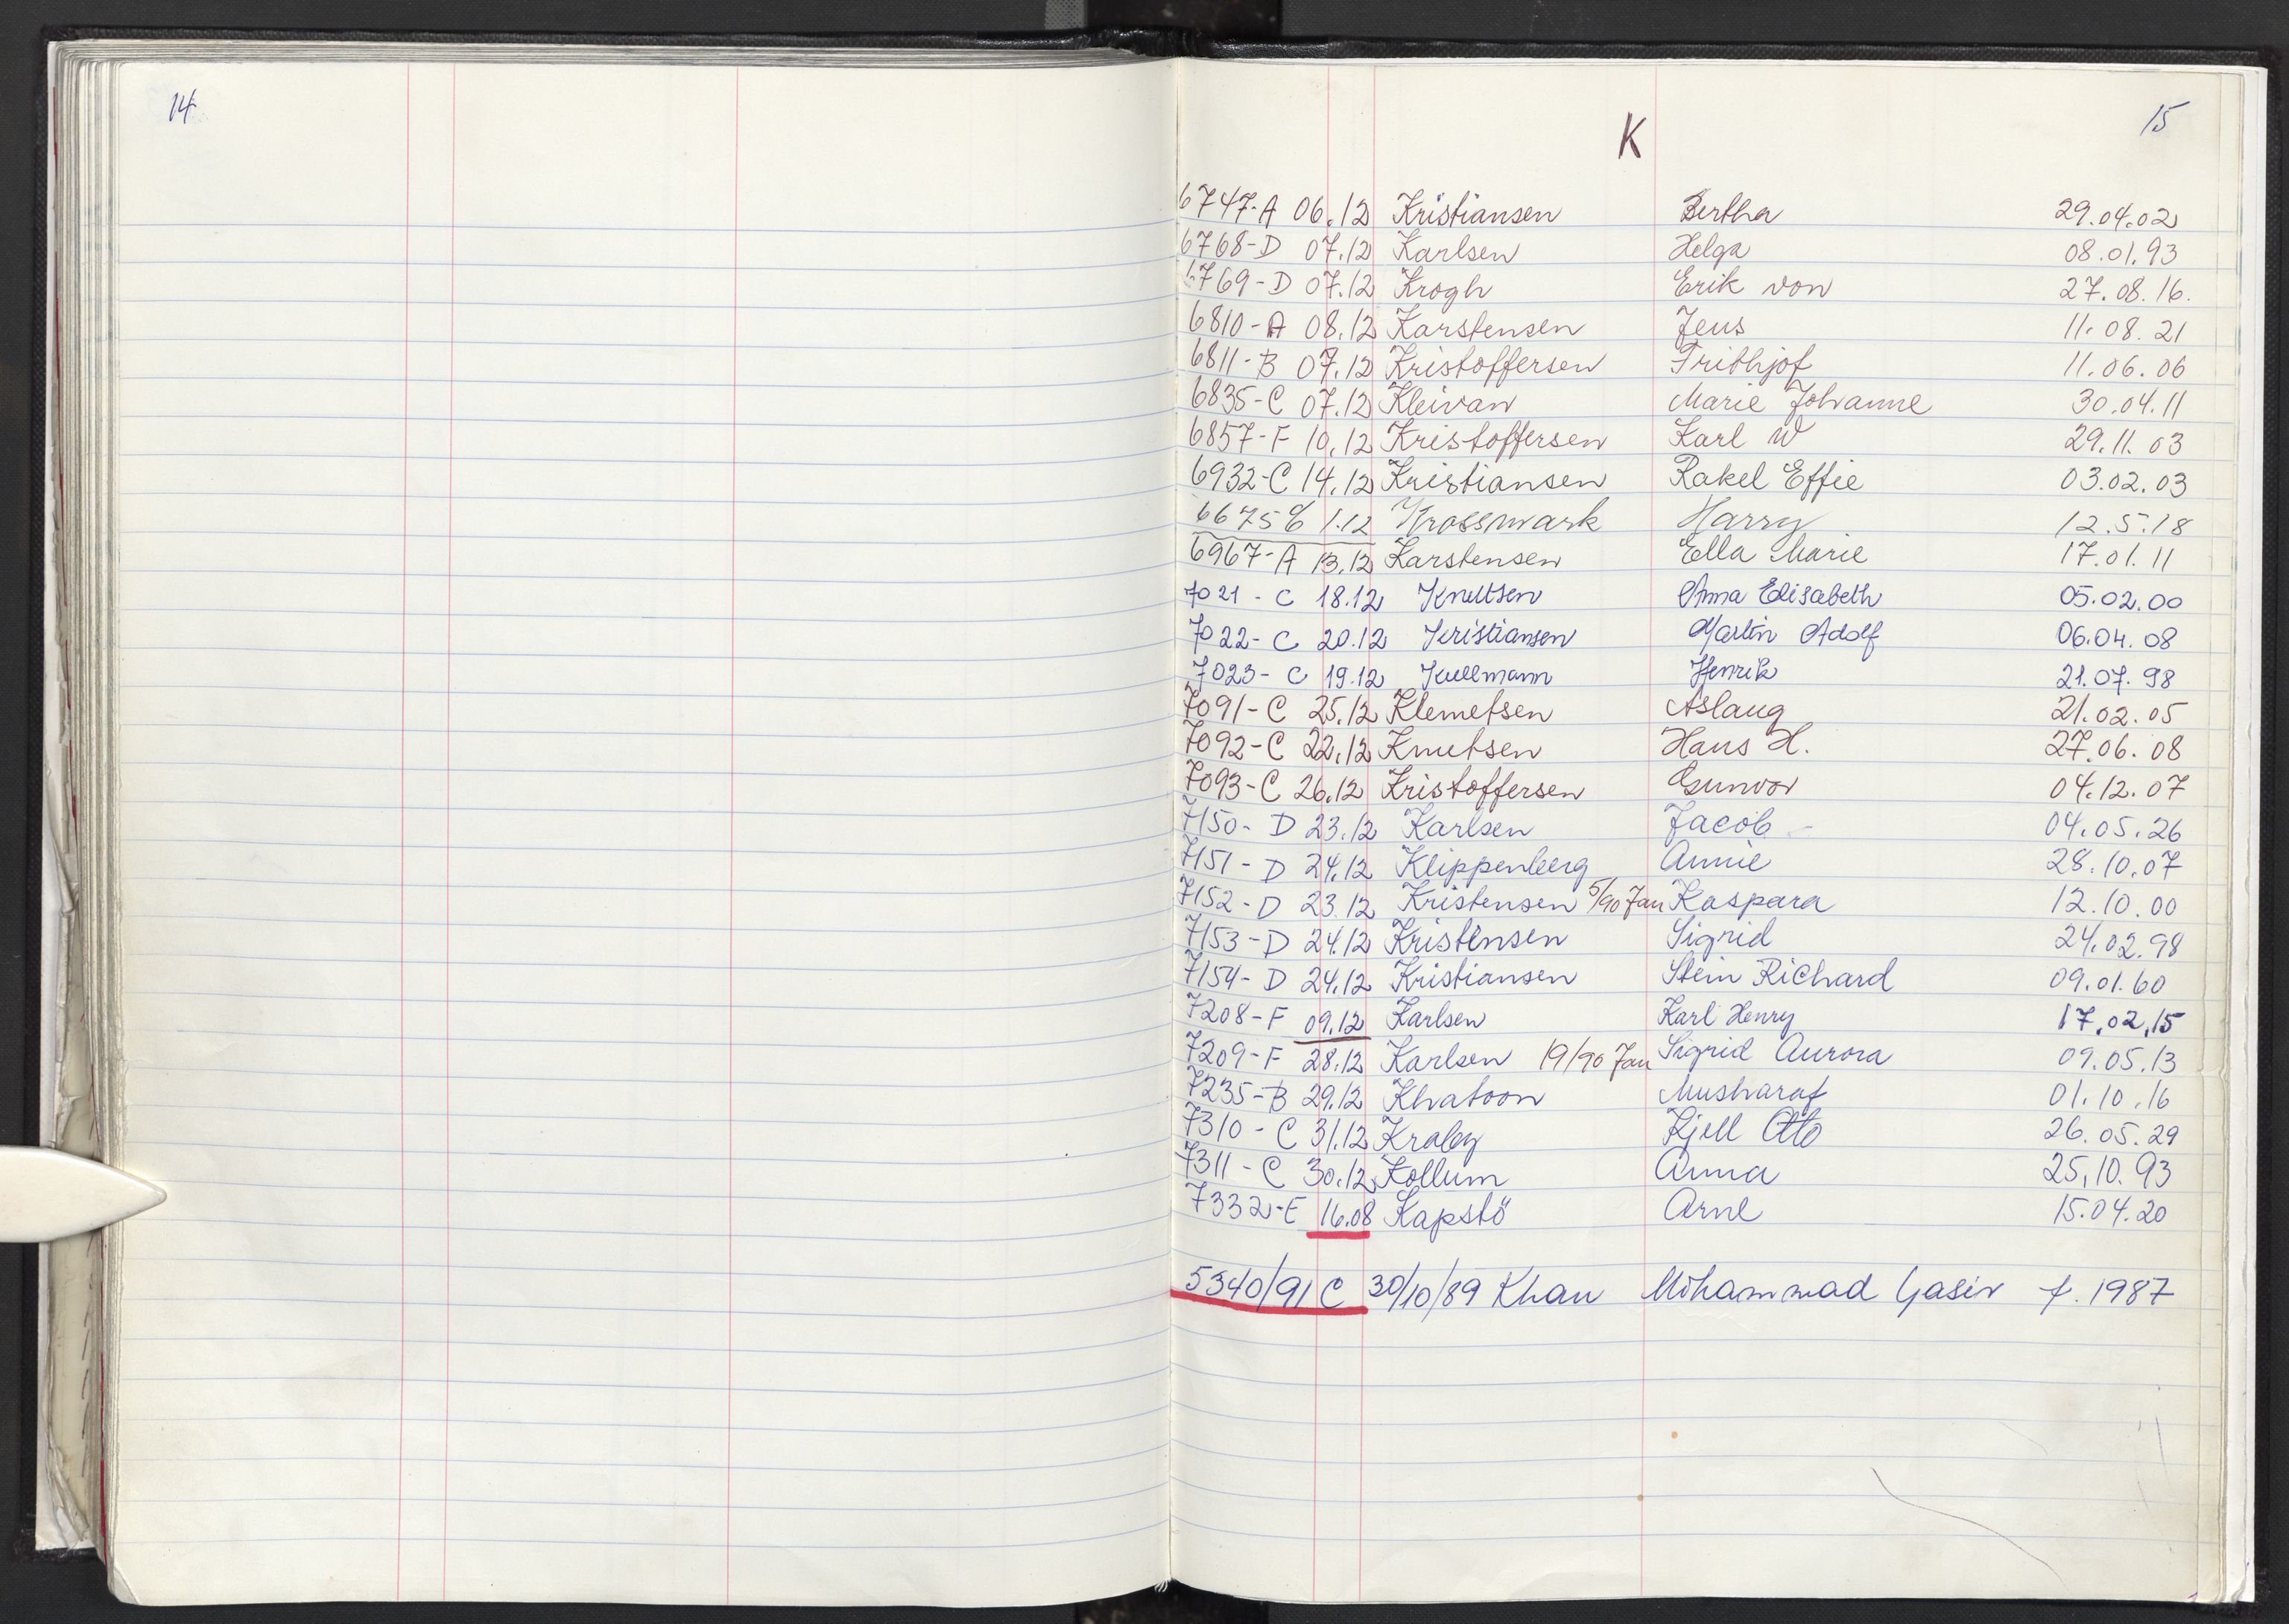 14
15
K
6747-A 06.12 Kristiansen Bertha 29.04.02
6768-D 07.12 Karlsen Helga 08.01.93
6769-D 07.12 Krogh Erik von 27.08.16.
6810-A 08.12 Karstensen Jens 11.08.21
6811-B 07.12 Kristoffersen Frithjof 11.06.06
6835-C 07.12 Kleivan Marie Johanne 30.04.11
6857-F 10.12 Kristoffersen Karl W 29.11.03
6932-C 14.12 Kristiansen Rakel Effie 03.02.03
6675 1.12 Krossmark Harry 12.5.18
6967-A 13.12 Karstensen Ella Marie 17.01.11
7021-C 18.12 Knutsen Anna Elisabeth 05.02.00
7022-C 20.12 Kristiansen Martin Adolf 06.04.08
7023-C 19.12 Kullmann Henrik 21.07.98
7091-C 25.12 Klemetsen Aslaug 21.02.05
7092-C 22.12 Knutsen Hans H. 27.06.08
7093-C 26.12 Kristoffersen Gunvor 04.12.07
7150-D 23.12 Karlsen Jacob 04.05.26
7151-D 24.12 Klippenberg Annie 28.10.07
7152-D 23.12 Kristensen 5/90 Jan Kaspara 12.10.00
7153-D 24.12 Kristensen Sigrid 24.02.98
7154-D 24.12 Kristiansen Stein Richard 09.01.60
7208-F 09.12 Karlsen Karl Henry 17.02.15
7209-F 28.12 Karlsen 19/90 Jan Sigrid Aurora 09.05.13
7235-B 29.12 Khatoon Musharaf 01.10.16
7310-C 31.12 Kraby Kjell Otto 26.05.29
7311-C 30.12 Kollum Anna 25.10.93
7332-E 16.08 Kapstö Arne 15.04.20
5340/91 C 30/10/89 Khan Mohammad Yasir f. 1987